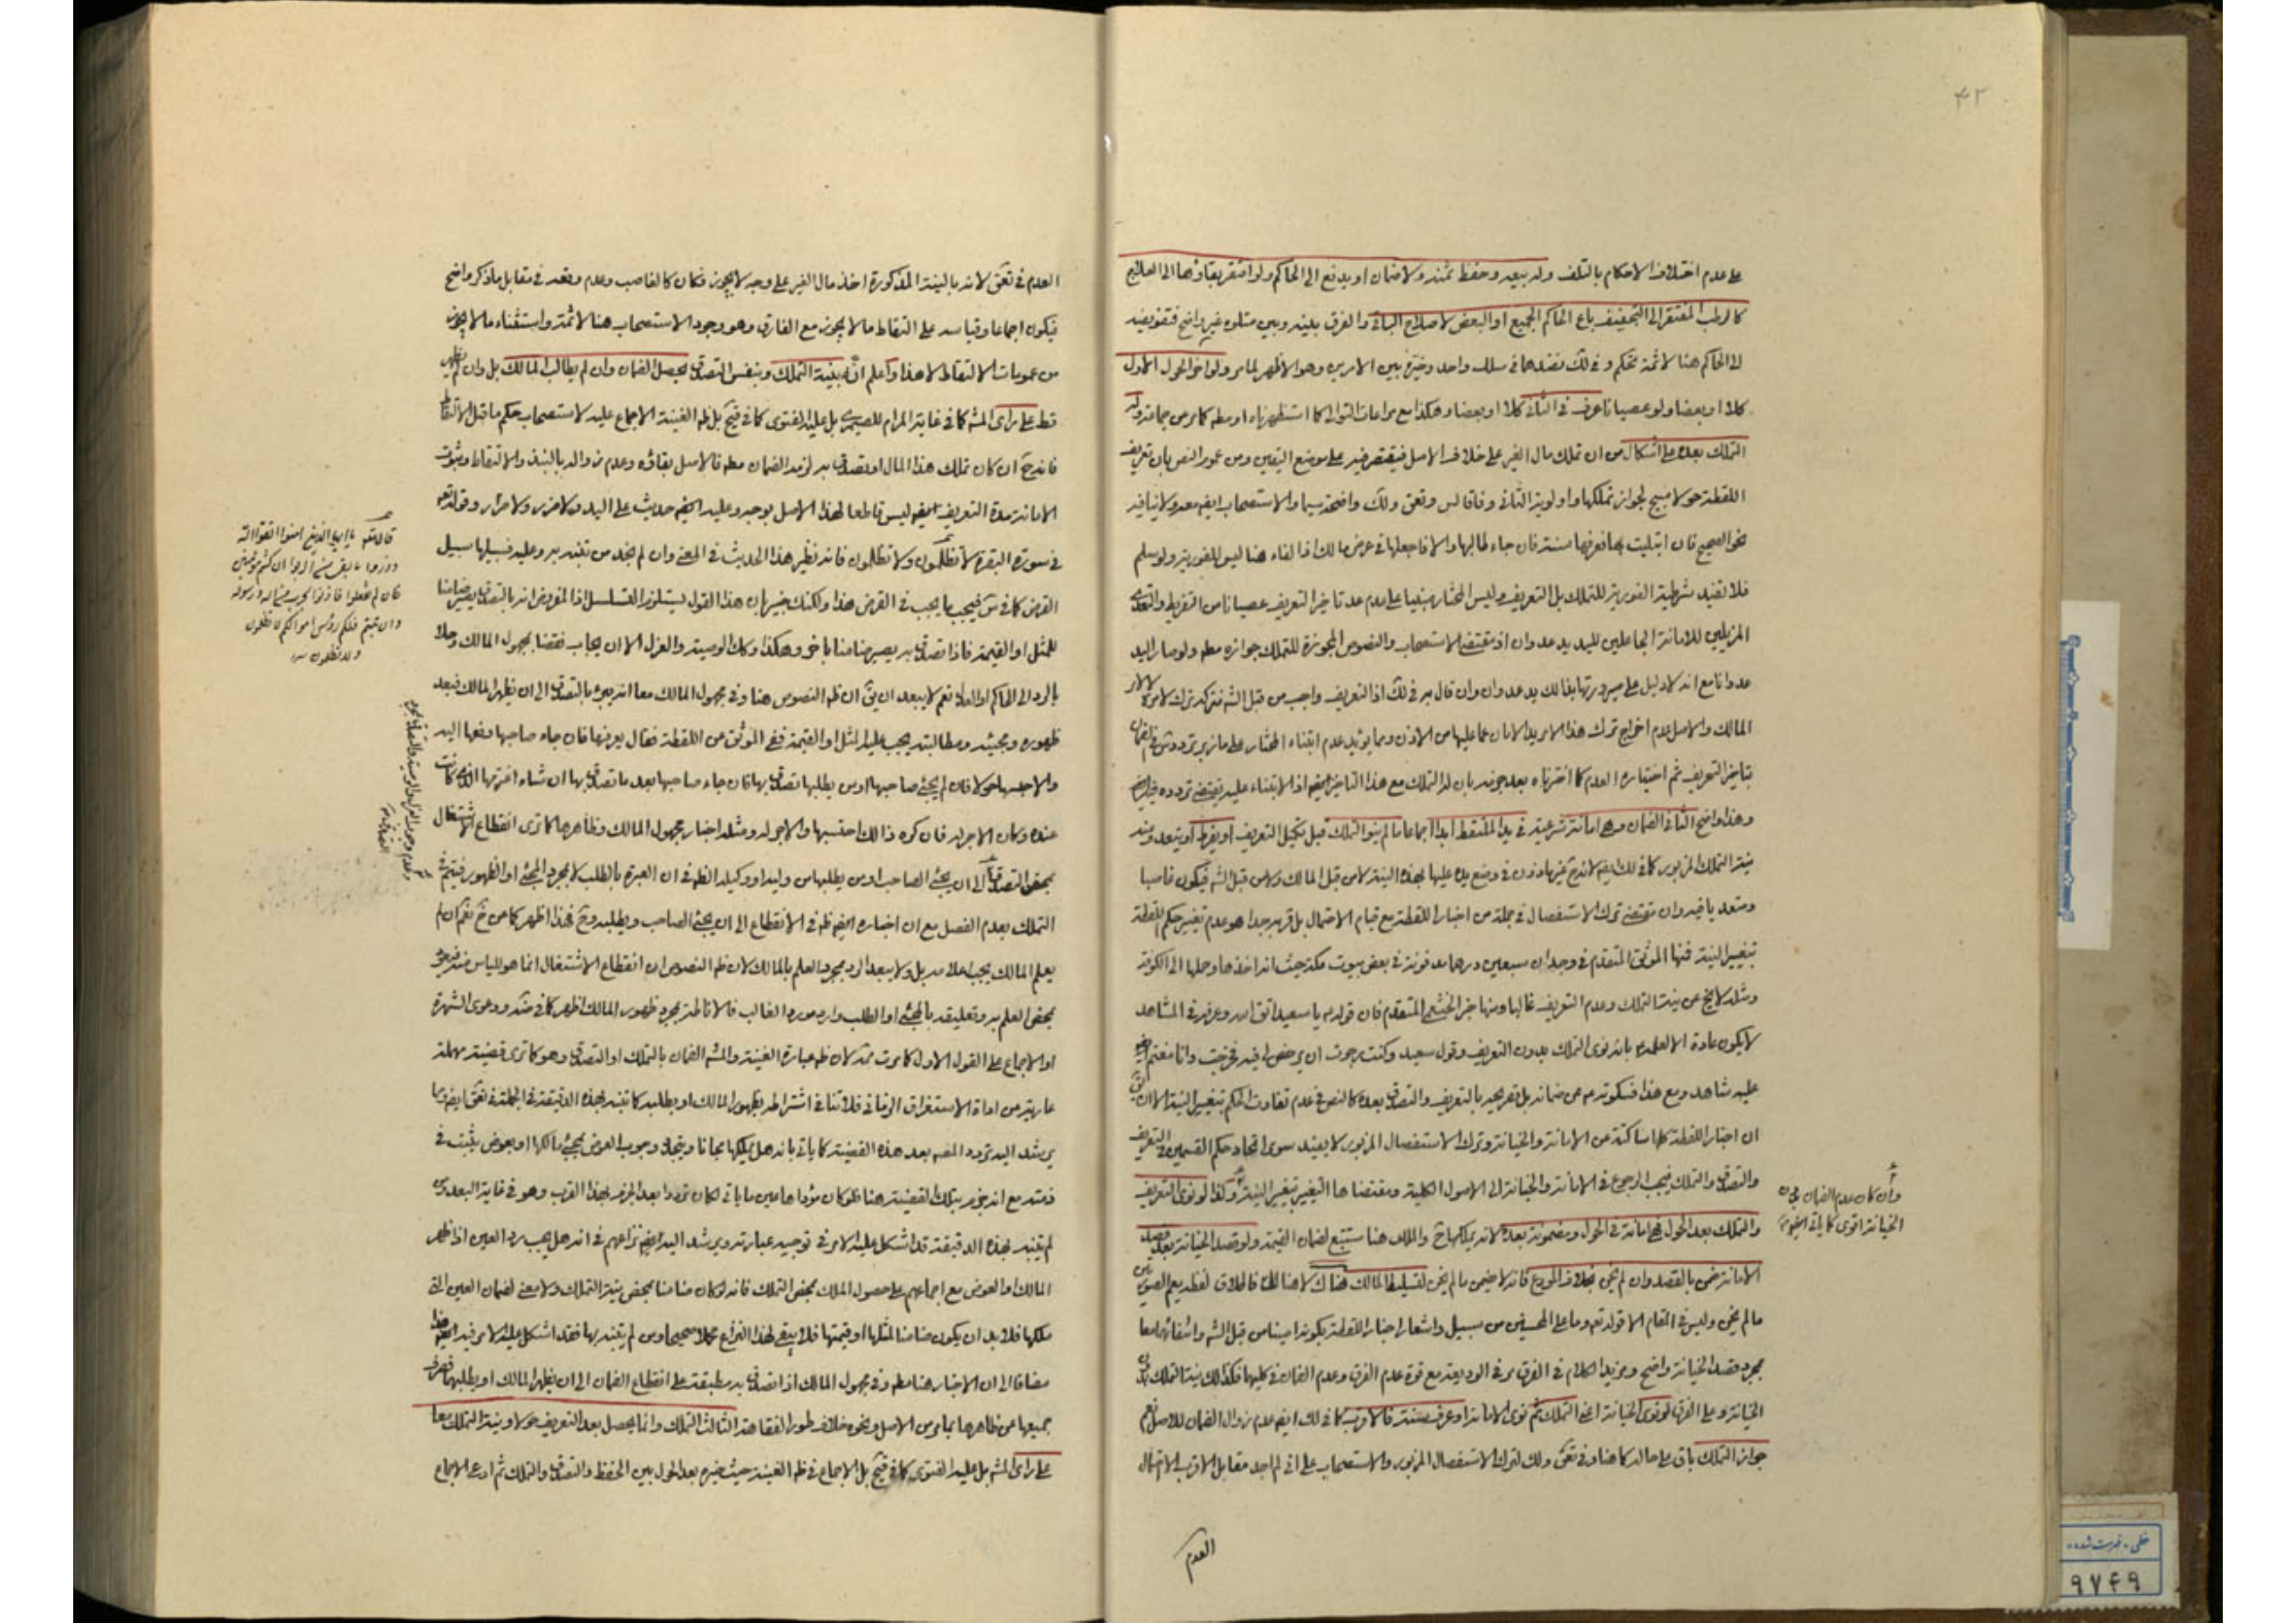 ۴۲
على عدم اختلاف الاحكام بالتلف وله بيعه وحفظ ثمنه ولا ضمان او يدفع الى الحاكم ولو افتقر بقاؤها الى العلاج
كالرطب المفتقر الى التجفيف باع الحاكم الجميع او البعض لاصلاح الباقي والفرق بينه وبين متلوه غير واضح فتفويضه
الى الحاكم هنا لا ثمة تحكم وفي لك نضدهما في سلك واحد وخير بين الامرين وهو الاظهر لما مر ولو اخر الحول الاول
كلا او بعضا ولو عصيانا عرف في الثاني كلا او بعضا وهكذا مع مراعات التوالي كما استظهرناه او مطه كما مر من جماعة وله
التملك بعده على اشكال من ان تملك مال الغير على خلاف الاصل فيقتصر فيه على موضع اليقين ومن عموم النص بان تعريف
اللقطة حولا مبيح لجواز تملكها واولوية الثاني وفاقا لس وتعق ولك واضحة سيما والاستصحاب ايضا معه ولا ينافيه
نحو الصحيح فان ابتليت بها فعرفها سنة فان جاء طالبها والا فاجعلها في عرض مالك اذ الفاء هنا ليس للفورية ولو سلم
فلا تفيد شرطية الفورية للتملك بل التعريف وليس المختار مبنيا على عدم عد تاخير التعريف عصيانا من التفريط والتعدي
المزيلين للامانة الجاعلين لليد يد عدوان اذ مقتضى الاستصحاب والنصوص المجوزة للتملك جوازه مطه ولو صار اليد
عدوانا مع انه لا دليل على صيرورتها بذلك يد عدوان وان قال به في لك اذ التعريف واجب من قبل الشرع فتركه ترك لامره لا لامر
المالك والاصل عدم اخراج ترك هذا الامر يد الامان عما عليها من الاذن ومما يؤيد عدم ابتناء المختار على ما زبر تردد
بتاخير التعريف ثم اختياره العدم كما اخترناه بعد جزمه بان له التملك مع هذا التاخير ايضا اذ الابتناء عليه يقتضي تردده فيه
وهذا واضح الثاني الضمان وهي امانة شرعية في يد الملتقط ابدا اجماعا ما لم ينو التملك قبل تكميل التعريف او يفرط او يتعد ومنه
نية التملك المزبور كما في لك ايضا لانه ح غير ماذون في وضع يده عليها بهذه النية لا من قبل المالك ولا من قبل الشرع فيكون غاصبا
ومتعديا فيه وان مقتضى ترك الاستفصال في جملة من اخبار اللقطة مع قيام الاحتمال بل قربه جدا هو عدم تغيير حكم اللقطة
بتغيير النية فمنها الموثق المتقدم في وجدان سبعين درهما مدفونة في بعض بيوت مكة حيث انه اخذها وحملها الى الكوفة
ومثله لا يخ عن نية التملك وعدم التعريف غالبا ومنها خبر الخثعمي المتقدم فان قوله يا سعيد اتق الله وعرفه في المشاهد
لا يكون عادة الا لعلمه بانه نوى التملك بدون التعريف وقول سعيد وكنت رجوت ان يرخص لي فيه فخرجت وانا مغتم ايضا
عليه شاهد ومع هذا فسكوته عن ضمانه بل تصريحه بالتعريف والتصدق بعده كالنص في عدم تفاوت الحكم بتغيير النية الا ان يق
ان اخبار اللقطة كلها ساكتة عن الامانة والخيانة وترك الاستفصال المزبور لا يفيد سوى اتحاد حكم القسمين في التعريف
والتصدق والتملك فيجب الرجوع في الامانة والخيانة الى الاصول الكلية ومقتضاها التغيير بتغيير النية وكذا لو نوى التعريف
والتملك بعد الحول فهي امانة في الحول ومضمونة بعده لانه يملكها ح والملك هنا يستتبع لضمان القيمة ولو قصد الخيانة بعد قصد
الامانة ضمن بالقصد وان لم يخن بخلاف المودع فانه لا يضمن ما لم يخن لتسليط المالك هناك لا هنا
ما لم يخن وليس في المقام الا قوله تعه وما على المحسنين من سبيل واشعار اخبار اللقطة بكونه امينا من قبل الشرع وانتفائهما معا
بمجرد قصد الخيانة واضح ومزيد الكلام في الفرق مر في الوديعة مع قوة عدم الفرق وعدم الضمان في كليهما فكذلك نية التملك
الخيانة وعلى الفرق لو نوى الخيانة اعني التملك ثم نوى الامانة او عرف سنة فالاقرب كما في لك ايضا عدم زوال الضمان للاصل نعم
جواز التملك باق على حاله كما هنا وفي تعق ولك لترك الاستفصال المزبور والاستصحاب على اني لم اجد مقابل الاقرب الاحتمال
العدم
وان كان عدم الضمان في
الخيانة اقوى كما ياتي ايضا منه
العدم في تعق لانه بالنية المذكورة اخذ مال الغير على وجه لا يجوز فكان كالغاصب وعدم وقعه في مقابل ما ذكر واضح
فيكون اجماعا وقياسه على التقاط ما لا يجوز مع الفارق وهو وجود الاستصحاب هنا لا ثمة واستثناء ما لا يجوز
من عمومات الالتقاط لا هذا واعلم انه بنية التملك وبنفس التصدق يحصل الضمان وان لم يطالب المالك بل وان لم يظهر
قط على راى المشه كما في غاية المرام للصيمري بل عليه الفتوى كما في قيح بل ظه الغنية الاجماع عليه لاستصحاب حكم ما قبل الالتقاط
فانه ح ان كان تملك هذا المال او تصدق به لزمه الضمان مطه فالاصل بقاؤه وعدم زواله بالنبذ والالتقاط وثبوت
الامانة مدة التعريف ايضا ليس قاطعا لهذا الاصل بوجه وعليه ايضا حديث على اليد ولا ضرر ولا ضرار وقوله تعه
في سورة البقرة لا تظلمون ولا تظلمون فانه نظير هذا الحديث في المعنى وان لم نجد من تنبه به وعليه فسبيلها سبيل
القرض كما في س فيجب ما يجب في القرض هذا ولكنك خبير بان هذا القول يستلزم التسلسل اذ المفروض انه بالتصدق يصير ضامنا
للمثل او القيمة فاذا تصدق به يصير ضامنا باخر وهكذا وكذا الوصية والعزل الا ان يجاب نقضا بمجهول المالك وحلا
بالرد الى الحاكم او العدل نعم لا يبعد ان يق ان ظه النصوص هنا وفي مجهول المالك معا انه يبرء بالتصدق الى ان يظهر المالك فبعد
ظهوره ومجيئه ومطالبته يجب عليه المثل او القيمة ففي الموثق عن اللقطة فقال يعرفها فان جاء صاحبها دفعها اليه
والا حبسها حولا فان لم يجئ صاحبها او من يطلبها تصدق بها فان جاء صاحبها بعد ما تصدق بها ان شاء اغترمها الذي كانت
عنده وكان الاجر له فان كره ذلك احتسبها والاجر له ومثله اخبار مجهول المالك وظاهرها كما ترى انقطاع الاشتغال
بمحض التصدق الى ان يجئ الصاحب او من يطلبها من وليه او وكيله الظه في ان العبرة بالطلب لا بمجرد المجئ او الظهور فيتم
التملك بعدم الفصل مع ان اخباره ايضا ظه في الانقطاع الى ان يجئ الصاحب ويطلبه وح فهذا اظهر كما عن ح نعم ان لم
يعلم المالك يجب اعلامه به بل ولا يبعد الرد بمجرد العلم بالمالك لان ظه النصوص ان انقطاع الاشتغال انما هو للياس
بمحض العلم به وتعليقه بالمجئ او الطلب وارد مورد الغالب فالاناطة بمجرد ظهور المالك اظهر كما في ضه ودعوى الشهرة
او الاجماع على القول الاول كما مرت ممة لان ظه عبارة الغنية والمشه الضمان بالتملك او التصدق وهو كما ترى قضية مهملة
عارية من اداة الاستغراق الزماني فلا تنافي اشتراطه بظهور المالك او بطلبه كما تنبه لهذه الدقيقة في الجملة في تعق ايضا وربما
يرشد اليه تردد المصه بعد هذه القضية كما ياتي بانه هل يملكها مجانا ويتجدد وجوب العوض بمجئ مالكها او بعوض يثبت في
ذمته مع انه جزم بتلك القضية هنا فلو كان مؤداها عين ما ياتي لكان ترددا بعد الجزم بهذا القرب وهو في غاية البعد ومن
لم يتنبه لهذه الدقيقة قد اشكل عليه الامر في توجيه عبارته ويرشد اليه ايضا نزاعهم في انه هل يجب رد العين اذا ظهر
المالك او العوض مع اجماعهم على حصول الملك بمحض التملك فانه لو كان ضامنا بمحض نية التملك ولا معنى لضمان العين التي
ملكها فلا بد ان يكون ضامنا لمثلها او قيمتها فلا يبقى لهذا النزاع محلا صحيحا ومن لم يتنبه بها فقد اشكل عليه الامر فيه ايضا هذا
مضافا الى ان الاخبار هنا مطه وفي مجهول المالك اذا تصدق به مطبقة على انقطاع الضمان الى ان يظهر المالك او يطلبها فصرف
جميعها عن ظاهرها بما مر من الاصل ونحوه خلاف طور الفقاهة الثالث التملك وانما يحصل بعد التعريف حولا ونية التملك معا
على راى المشه بل عليه الفتوى كما في قيح بل الاجماع في ظه الغنية حيث خيره بعد الحول بين الحفظ والتصدق والتملك ثم ادعى الاجماع
قال تعه يا ايها الذين امنوا اتقوا الله
وذروا ما بقى من الربوا ان كنتم مؤمنين
فان لم تفعلوا فاذنوا بحرب من الله ورسوله
وان تبتم فلكم رؤس اموالكم لا تظلمون
ولا تظلمون منه
خطى، فهرست شده
۹۷۴۹